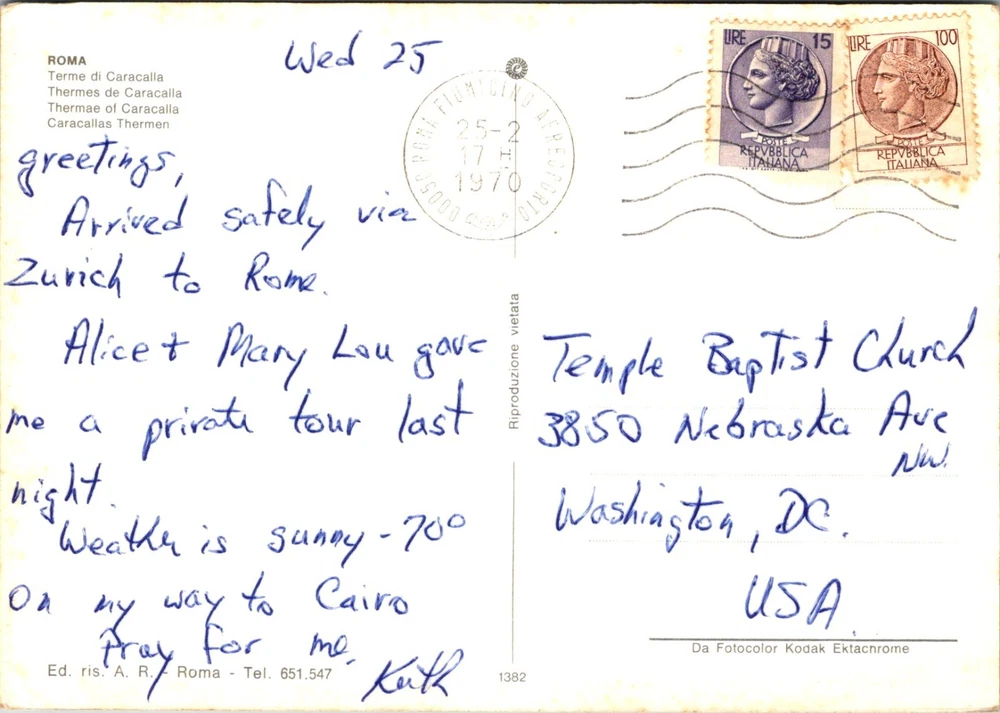 ROMA
Terme di Caracalla
Thermes de Caracalla
Thermae of Caracalla
Caracallas Thermen
Wed 25
00050 ROMA FIUMICINO AEROPORTO
25-2
17
1970
LIRE 15
POSTE
REPVBBLICA
ITALIANA
LIRE 100
POSTE
REPVBBLICA
ITALIANA
greetings,
Arrived safely via
Zurich to Rome.
Alice + Mary Lou gave
me a private tour last
night.
Weather is sunny - 70°
On my way to Cairo
Pray for me.
Keith
Riproduzione vietata
Temple Baptist Church
3850 Nebraska Ave
NW.
Washington, DC.
USA
Da Fotocolor Kodak Ektachrome
Ed. ris. A. R. - Roma - Tel. 651.547
1382